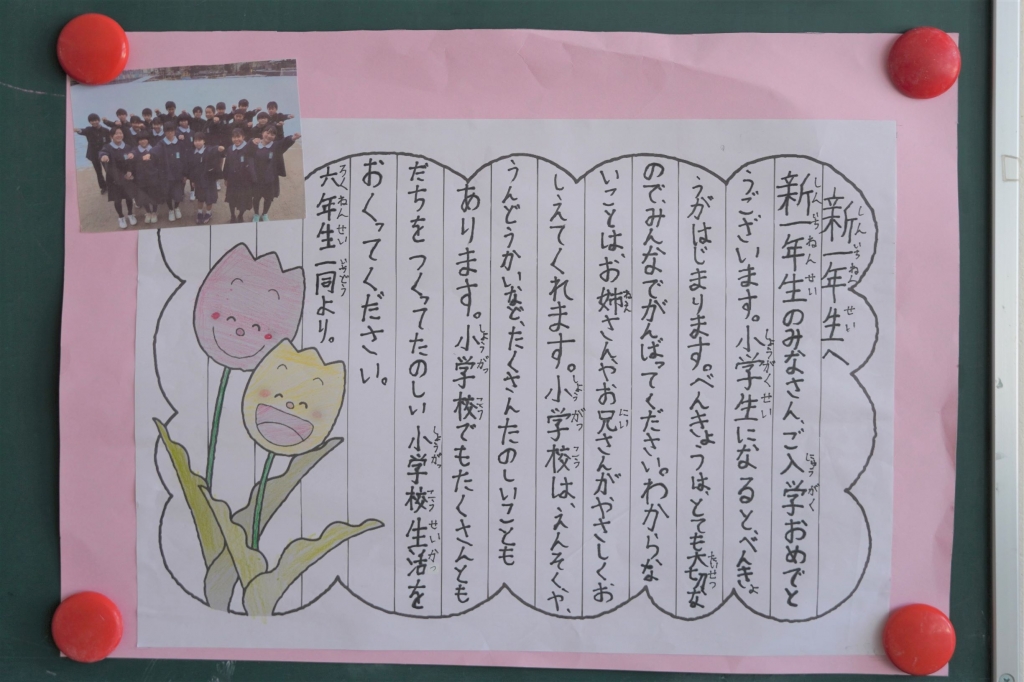 新一年生へ
新一年生のみなさん、ご入学おめでと
うございます。小学生になると、べんきょ
うがはじまります。べんきょうは、とても大切な
ので、みんなでがんばってください。わからな
いことは、お姉さんやお兄さんがやさしくお
しえてくれます。小学校は、えんそくや、
うんどうかいなど、たくさんたのしいことも
あります。小学校でもたくさんとも
だちをつくってたのしい小学校生活を
おくってください。
六年生一同より。